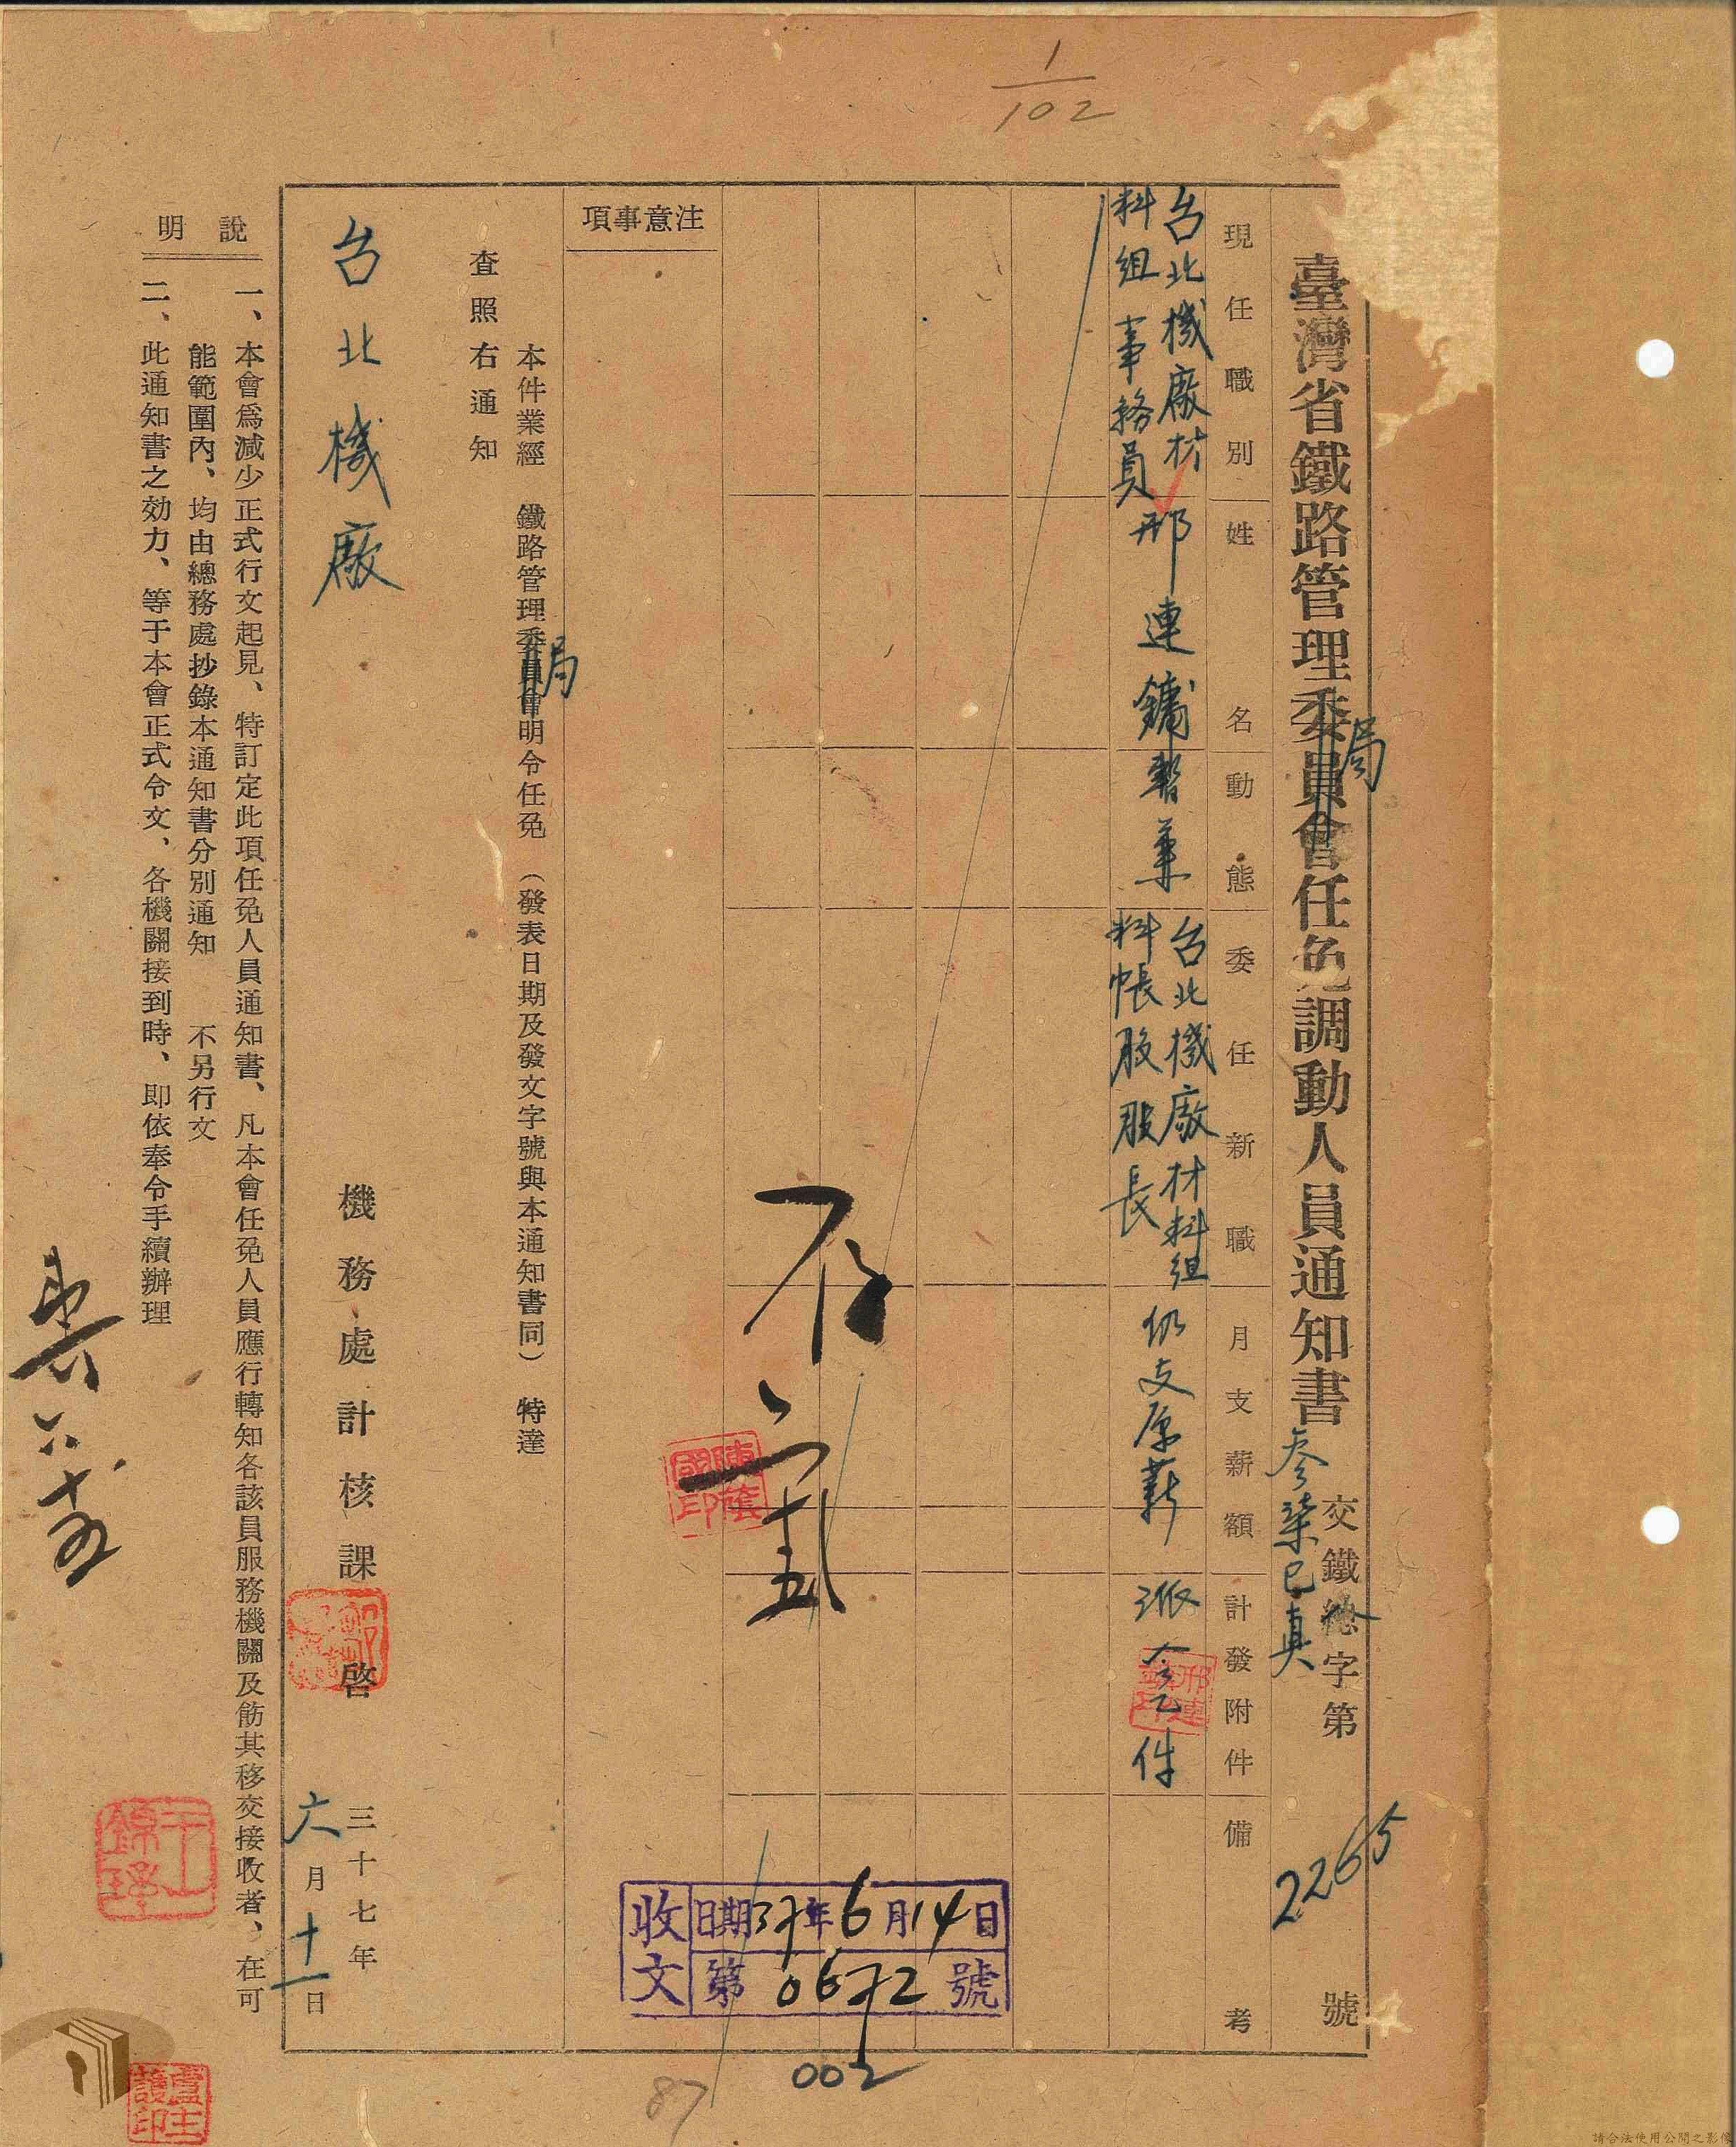 1/102
臺灣省鐵路管理委員會任免調動人員通知書
局
參柒已真
交鐵總字第
2265
號
現任職別
姓名
動態
委任新職
月支薪額
計發附件
備考
台北機廠材
料組事務員
邢連鏞
暫兼
台北機廠材料組
料帳股股長
仍支原薪
派令乙件
注意事項
收文
日期37年6月14日
第0672號
002
87
本件業經 鐵路管理委員會明令任免(發表日期及發文字號與本通知書同) 特達
局
查照右通知
台北機廠
機務處計核課 啓
三十七年
六月十一日
說明
一、本會爲減少正式行文起見、特訂定此項任免人員通知書、凡本會任免人員應行轉知各該員服務機關及飭其移交接收者、在可
能範圍內、均由總務處抄錄本通知書分別通知 不另行文
二、此通知書之効力、等于本會正式令文、各機關接到時、即依奉令手續辦理
請合法使用公開之影像